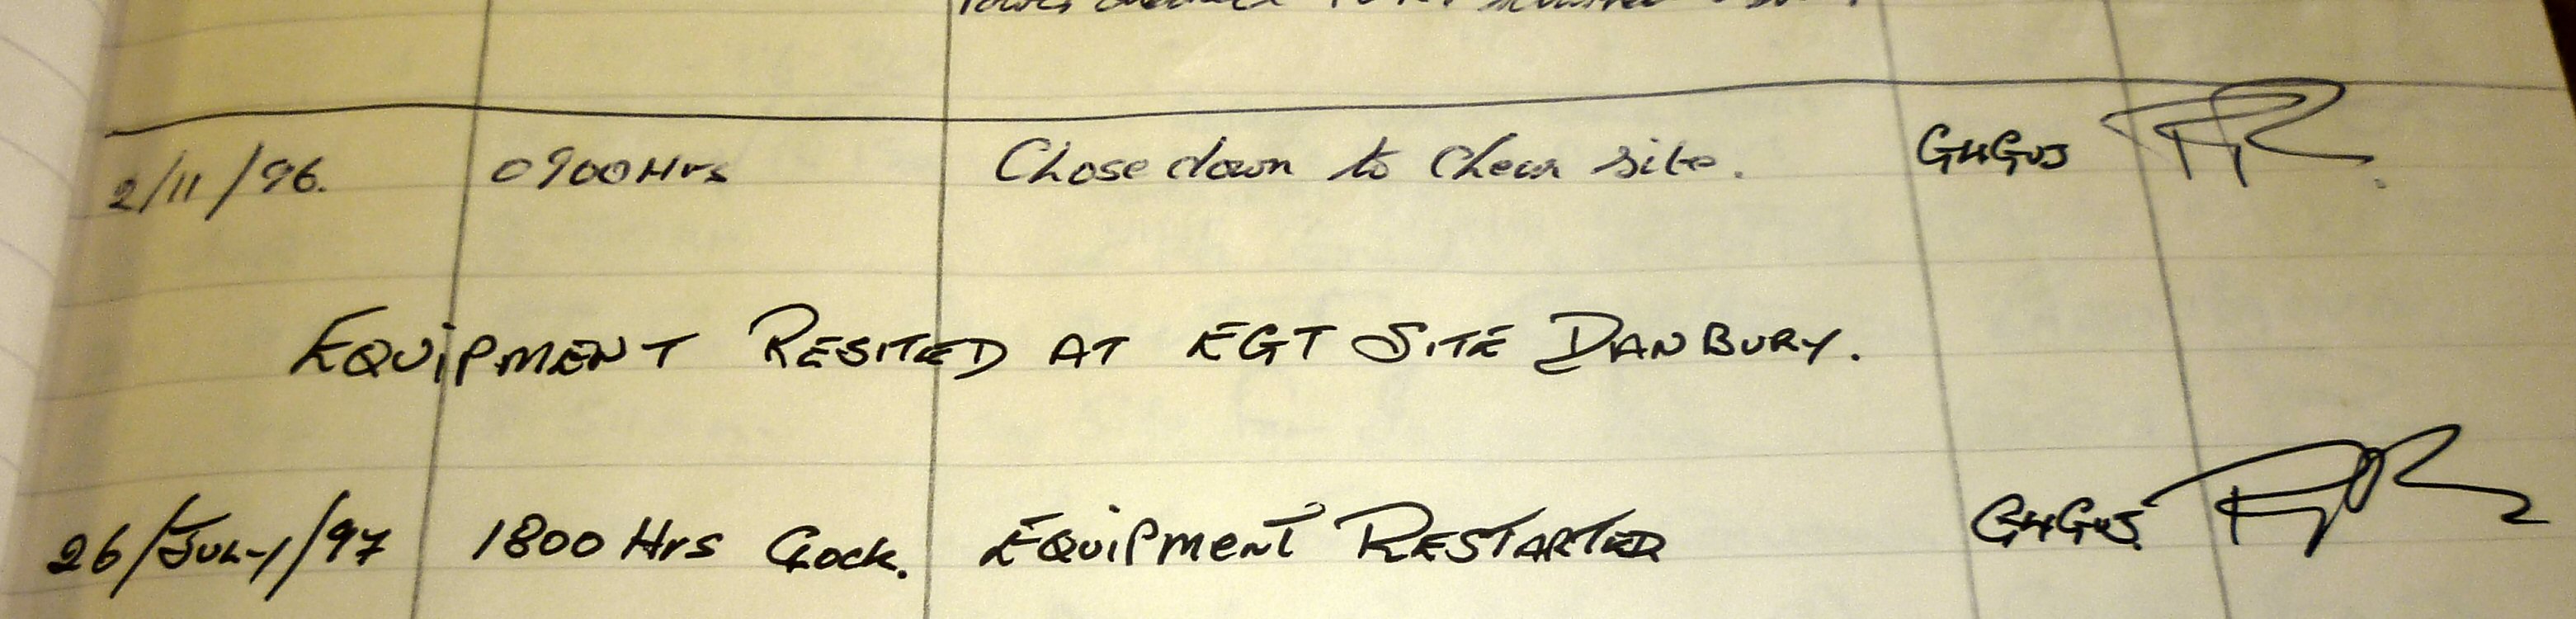 2/11/96. 0900Hrs Close down to clear site. G4GUJ
EQUIPMENT RESITED AT EGT SITE DANBURY.
26/JULY/97 1800 Hrs Clock. EQUIPMENT RESTARTED G4GUJ